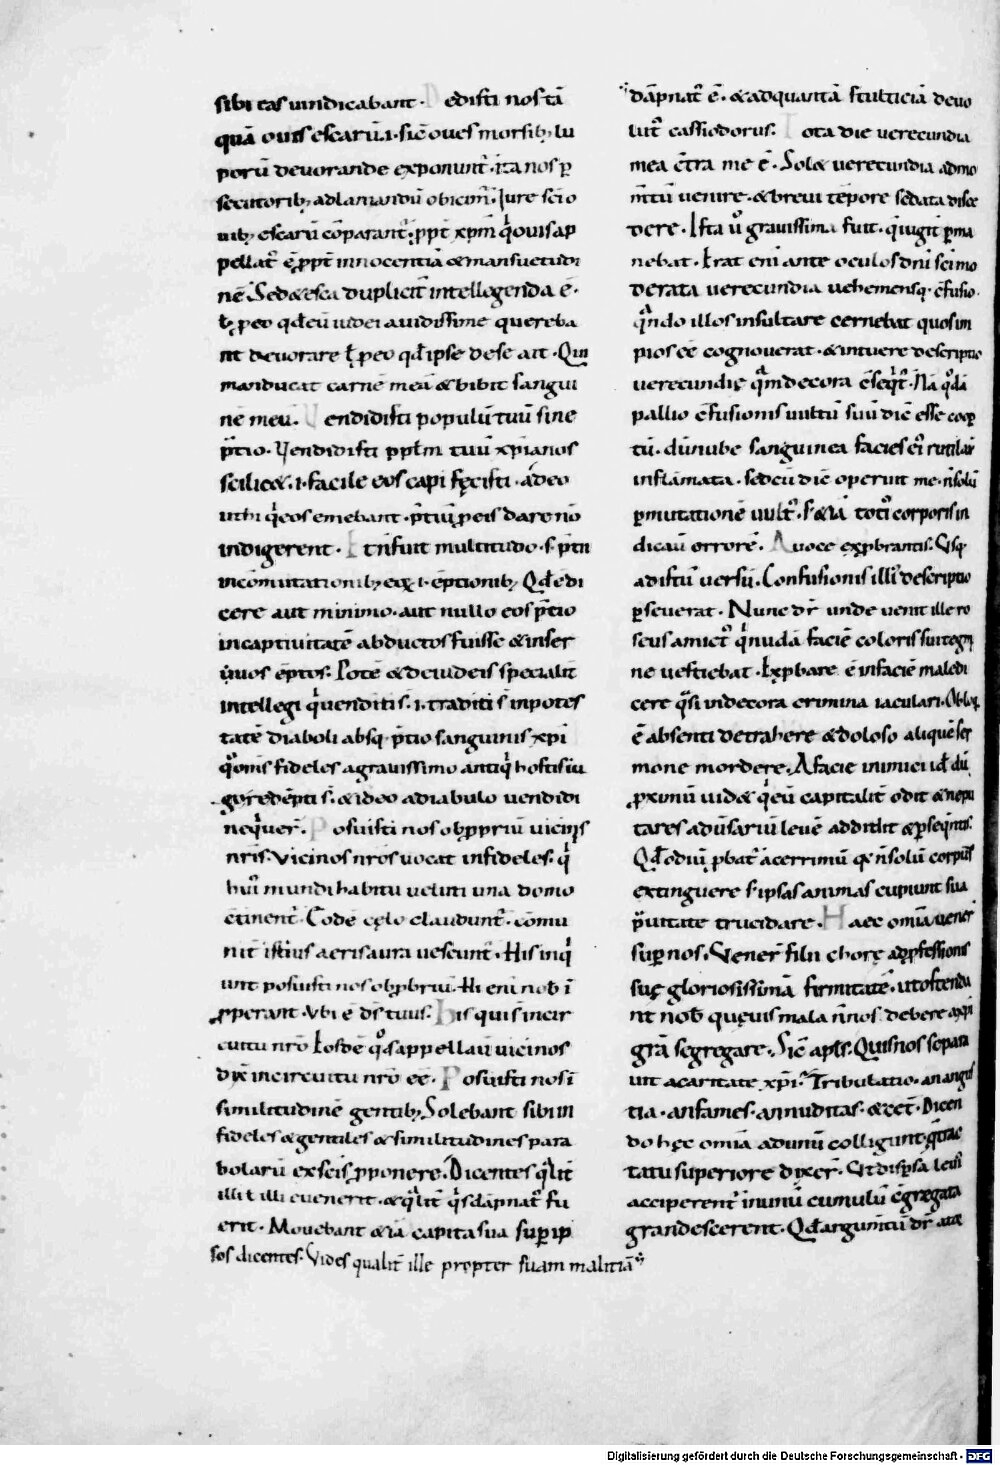 sibi eas uindicabant. Dedisti nos tā
quā oues escarū .i. sic̄ oues morsib; lu
porū deuorande exponunt̄. ita nos p̄
secutorib; ad laniandū obicim̄. Iure sc̄io
nib; escarū cōparant̄. ppt̄ xp̄m qͥ ouis ap
pellat̄ ē ppt̄ innocentiā & mansuetudi
nē. Sed & esca duplicit̄ intellegenda ē.
ł p eo qd̄ eū iudei auidissime quereba
nt deuorare ł p eo qd̄ ipse de se ait. Qui
manducat carnē meā & bibit sangui
nē meū. Uendidisti populū tuū sine
p̄tio. Uendidisti pp̄lm tuū xp̄ianos
scilic&. i. facile eos capi fecisti. adeo
ut hi qͥ eos emebant. p̄tiū p eis dare nō
indigerent. Et n̄ fuit multitudo. s. p̄tii
in cōmutationib; eoꝝ .i. ēptionib;. Qd̄ ē di
cere aut minimo. aut nullo eos p̄tio
in captiuitatē abductos fuisse & in ser
uos ēptos. Potē & de iudeis specialit̄
intellegi qͥ uenditi s̄ .i. traditi s̄ in potes
tatē diaboli absq; p̄tio sanguinis xp̄i
qͦ omis fideles a grauissimo antiqͥ hostis iu
go redēpti s̄. & ideo a diabulo uendidi
neqͥuer̄. Posuisti nos obpriū uicinis
nr̄is. Vicinos nr̄os uocat infideles. qͥ
huiͥ mundi habitu ueluti una domo
c̄tinent̄. Eodē cęlo claudunt̄. cōmu
nit̄ istius aeris aura uescunt̄. His inqͥ
unt posuisti nos obpbriū. Hi eni nob̄ ī
pperant. Vbi ē d̄s tuus. His qui s̄ in cir
cuitu nr̄o. Eosdē qͦs appellauͥ uicinos
dix̄ in circuitu nr̄o ēē. Posuisti nos ī
similitudinē gentib;. Solebant sibi in
fideles & gentiles & similitudines para
bolarū ex sc̄is pponere. Dicentes qͣlit̄
illi ł illi euenerit. & qͣlit̄ qͥs dāpnat̄ fu
erit. Mouebant & iā capita sua sup ip
sos dicentes. Vides qualit̄ ille propter suam malitiā
dāpnat̄ ē. & ad quantā stulticiā deuo
lut̄ cassiodorus. Tota die uerecundia
mea c̄tra me ē. Sol& uerecundia ad mo
m̄tū uenire. & breui tēpore sedata disce
dere. Ista ū grauissima fuit. qͥ iugit̄ p̄ma
nebat. Erat eni ante oculos dn̄i sc̄i mo
derata uerecundia uehemensq; c̄fusio.
qͣndo illos insultare cernebat quos im
pios ēē cognouerat. & intuere descriptio
uerecundie qͣm decora c̄seqͥt̄. Nā qͦdā
pallio c̄fusionis uultū suū dic̄ esse coop
tū. dū nube sanguinea facies eī rutilāt̄
inflāmata. sed cū dic̄ operuit me. n̄ solū
p̄mutationē uult̄. s & iā totiͥ corporis in
dicauͥ orrorē. A uoce expbrantis. Usq;
ad istū uersū. Confusionis illiͥ descriptio
pseuerat. Nunc dr̄ unde uenit ille ro
seus amict̄ qͥ nudā faciē coloris sui tegm̄
ne uestiebat. Expbare ē in faciē maledi
cere qͣsi indecora crimina iaculari. Obloq̄
ē absenti detrahere & doloso aliquē ser
mone mordere. A facie inimici id̄ dū
pximū uid& qͥ eū capitalit̄ odit & nepu
tares adūsariū leuē addidit & pseqn̄tis.
Qd̄ odiū pbat̄ acerrimū qͥ n̄ solū corpus
extinguere s̄ ipsas animas cupiunt sua
puitate trucidare. Haec omīa uener̄
sup nos. Vener̄ filii chore ad pfessionis
suę gloriosissimā firmitatē. ut ostendu
nt nob̄ queuis mala n̄ nos debere a xp̄i
grā segregare. Sic̄ apl̄s. Quis nos separa
uit a caritate xp̄i. Tribulatio. an angus
tia. an fames. an nuditas. & cet̄. Dicen
do hęc omīa ad unū colligunt. qͣ trac
tatu superiore dixer̄. Ut dispsa leuiͥ
acciperent̄ in unū cumulū c̄gregata
grandescerent. Qd̄ argumt̄ū dr̄